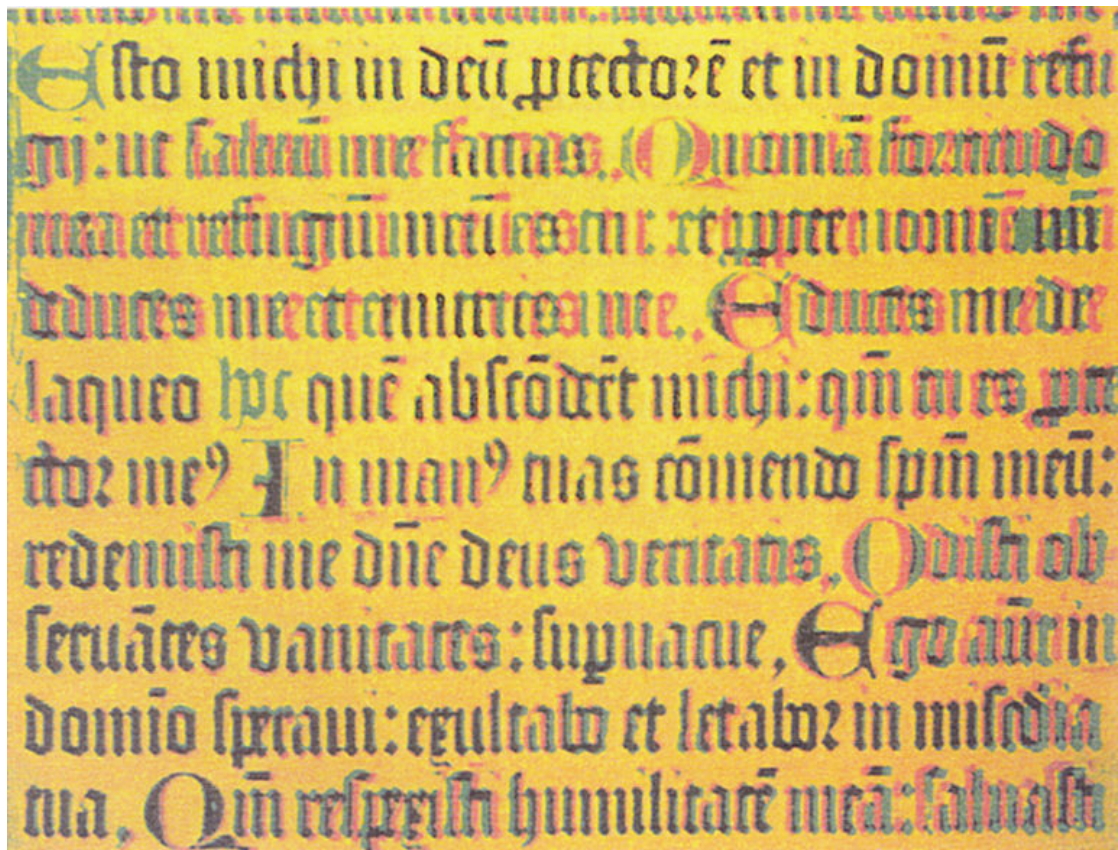 Esto michi in deū ꝓtectorē et in domū refu
gij: ut saluū me facias. Quoniā fortitudo
mea et refugiū meū es tu: et ꝓpter nomē tuū
deduces me et enutries me. Educes me de
laqueo hoc quē abscōderūt michi: qm̄ tu es ꝓte
ctor meꝰ In manꝰ tuas cōmendo spm̄ meū:
redemisti me dn̄e deus veritatis. Odisti ob
seruātes vanitates: supuacue, Ego aūt in
domīo speraui: exultabo et letabor in misc̄dia
tua. Qm̄ respexisti humilitatē meā: saluasti